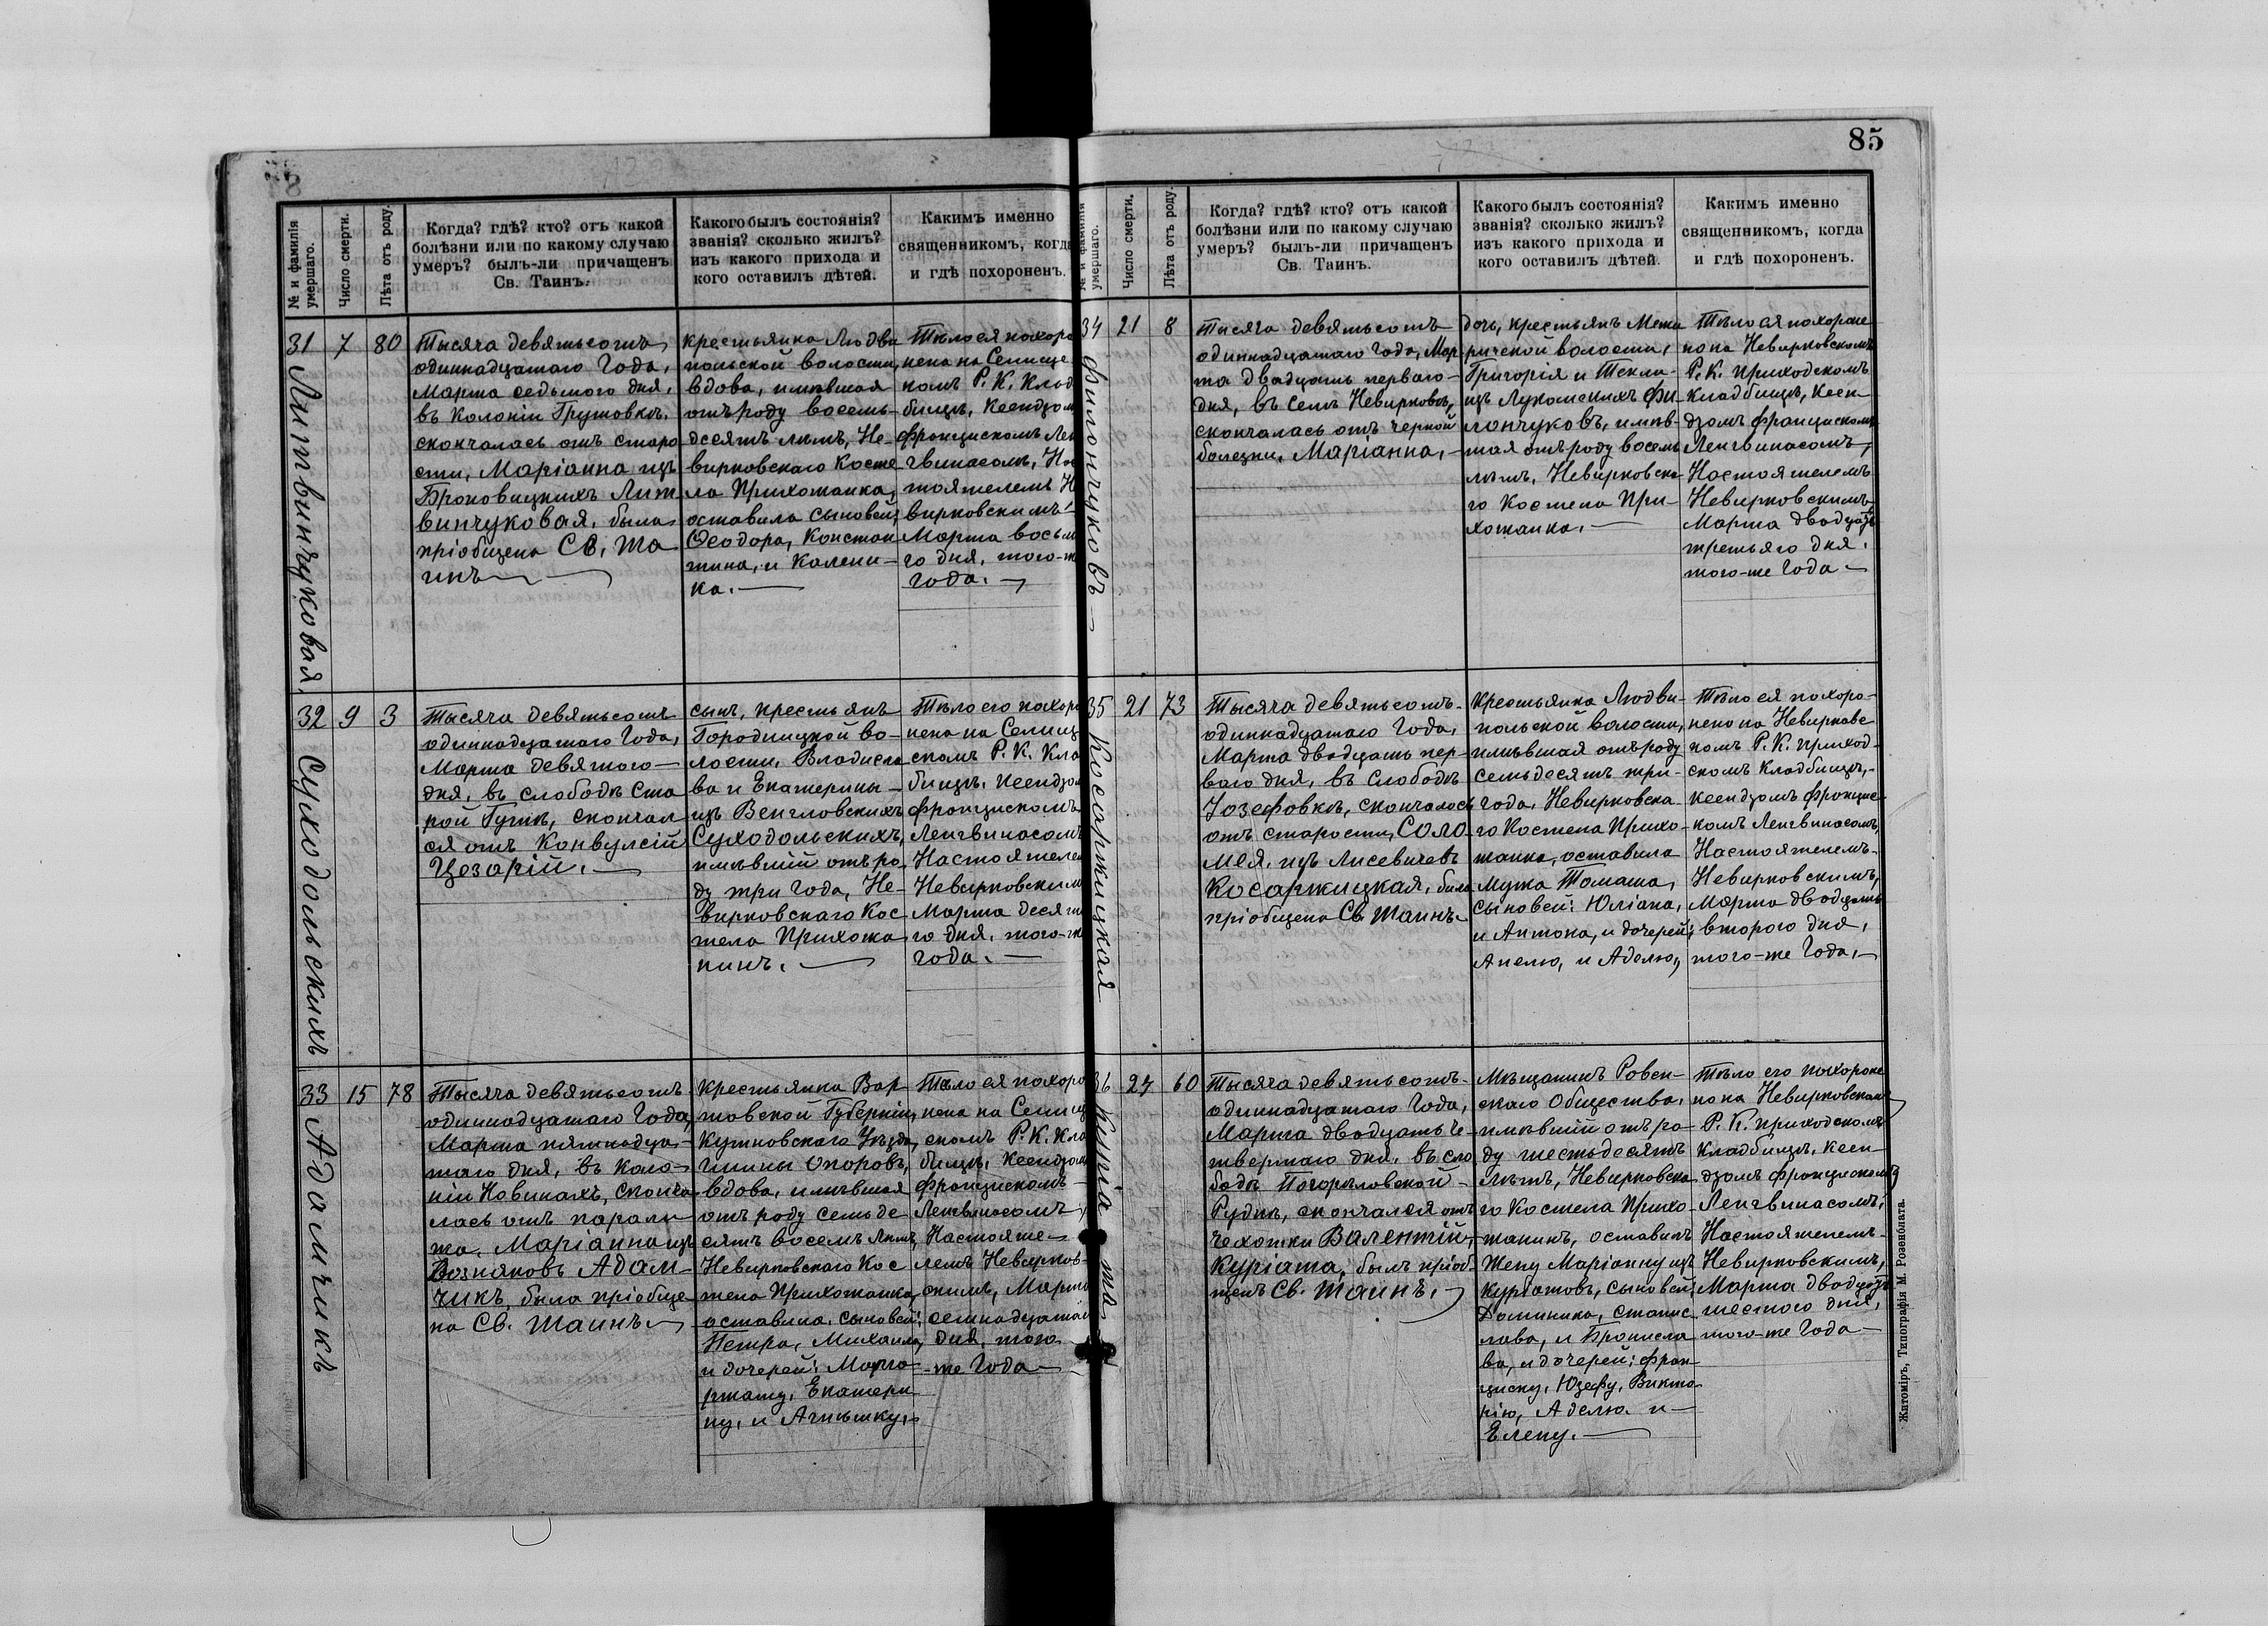 85
№ и фамилія
умершаго.
Число смерти.
Лѣта отъ роду.
Когда? гдѣ? кто? отъ какой
болѣзни или по какому случаю
умеръ? былъ-ли причащенъ
Св. Таинъ.
Какого былъ состоянія?
званія? сколько жилъ?
изъ какого прихода и
кого оставилъ дѣтей.
Какимъ именно
священникомъ, когда
и гдѣ похороненъ.
31
Литвинчуковая.
7
80
Тысяча девятьсотъ
одиннадцатаго Года,
Марта седьмого дня,
въ Колоніи Грушовкѣ,
скончалась отъ старо
сти, Маріанна изъ
Броновицкихъ Лит
винчуковая, была
пріобщена Св. Та
инъ
крестьянка Людви
польской волости,
вдова, имѣвшая
отъ роду восемь-
десятъ лѣтъ, Не-
вирковскаго Косте
ла Прихожанка,
оставила сыновей:
Ѳеодора, Констан
тина, и Калени-
ка.
Тѣло ея похоро
нена на Селище
комъ Р. К. Клад
бищѣ, Ксендзом
Францискомъ Лен
гвинасомъ, Нас
тоятелемъ Не
вирковскимъ
Марта восьмо
го дня, того-ж
года.
32
Суходольскихъ
9
3
Тысяча девятьсотъ
одиннадцатаго Года,
Марта девятого
дня, въ слободѣ Ста
рой Гутѣ, скончал
ся отъ Конвулсій
Цезарій.
сынъ, крестьянъ
Городницкой во-
лости, Владисла
ва и Екатерины
изъ Венгловскихъ
Суходольскихъ,
имѣвшій отъ ро
ду три года, Не-
вирковскаго Кос
тела Прихожа
нинъ.
Тѣло его похоро
нена на Селищ
скомъ Р. К. Кла
бищѣ, Ксендзом
Францискомъ
Ленгвинасомъ
Настоятелем
Невирковским
Марта десято
го дня, того-же
года.
33
Адамчикъ
15
78
Тысяча девятьсотъ
одиннадцатаго Года,
Марта пятнадца-
таго дня, въ Коло-
ніи Новинахъ, сконча
лась отъ парали
жа, Маріанна изъ
Возняковъ Адам-
чикъ, была пріобще
на Св. Таинъ
крестьянка Вар
шовской Губерніи,
Кутновскаго Уѣзда,
Гмины Опоровъ,
вдова, имѣвшая
отъ роду семьде
сятъ восемъ лѣтъ,
Невирковскаго Кос
тела Прихожанка,
оставила, сыновей:
Петра, Михаила,
и дочерей: Марга
ржату, Екатери
ну, и Агнѣшку.
Тѣло ея похоро
нена на Селищ
скомъ Р. К. Кла
бищѣ, Ксендзом
Францискомъ
Ленгвинасомъ,
Настояте-
лемъ Невирков-
скимъ, Марта
семнадцатаго
дня, того
-же Года
№ и фамилія
умершаго.
Число смерти.
Лѣта отъ роду.
Когда? гдѣ? кто? отъ какой
болѣзни или по какому случаю
умеръ? былъ-ли причащенъ
Св. Таинъ.
Какого былъ состоянія?
званія? сколько жилъ?
изъ какого прихода и
кого оставилъ дѣтей.
Какимъ именно
священникомъ, когда
и гдѣ похороненъ.
34
Филончуковъ
21
8
Тысяча девятьсотъ
одиннадцатаго Года, Мар
та двадцать перваго
дня, въ селѣ Невирковѣ,
скончалась отъ черной
болезни, Маріанна,
дочь, крестьянъ Межи
ричской волости,
Григорія и Текли
изъ Лукомскихъ Фи
лончуковъ, имѣв-
шая отъ роду восемь
лѣтъ, Невирковска
го Костела При-
хожанка.
Тѣло ея похороне
но на Невирковскомъ
Р. К. Приходскомъ
кладбищѣ, Ксен
дзомъ Францискомъ
Ленгвинасомъ,
Настоятелемъ
Невирковскимъ
Марта двадцать
третьяго дня,
того-же Года
35
Косаржицкая
21
73
Тысяча девятьсотъ
одиннадцатаго Года,
Марта двадцать пер-
ваго дня, въ Слободѣ
Іозефовкѣ, скончалась
отъ старости, Соло
мея, изъ Лисевичевъ
Косаржицкая, была
пріобщена Св. Таинъ
крестьянка Людви-
польской волости,
имѣвшая отъ роду
семьдесятъ три
года, Невирковска
го Костела Прихо-
жанка, оставила
Мужа Томаша,
сыновей: Юліана,
и Антона, и дочерей:
Анелю, и Аделю,
Тѣло ея похоро-
нено на Невирковс
комъ Р. К. Приход-
скомъ Кладбищѣ,
Ксендзомъ Францис-
комъ Ленгвинасомъ,
Настоятелемъ
Невирковскимъ,
Марта двадцать
второго дня,
того-же Года.
36
Куріата
24
60
Тысяча девятьсотъ
одиннадцатаго Года,
Марта двадцать че-
твертаго дня, въ сло
бодѣ Погорѣловской
Рудкѣ, скончался отъ
чехотки Валентій
Куріата, былъ пріоб-
щенъ Св. Таинъ.
Мѣщанинъ Ровен-
скаго Общества,
имѣвшій отъ ро-
ду шестьдесятъ
лѣтъ, Невирковска
го Костела Прихо-
жанинъ, оставилъ
Жену Маріанну изъ
Куріатовъ, сыновей:
Доминика, Станис
лава, и Брониела
ва, и дочерей: Фран-
циску, Юзефу, Викто
рію, Аделю и
Елену.
Тѣло его похороне
но на Невирковском
Р. К. Приходскомъ
Кладбищѣ, Ксен-
дзомъ Францискомъ
Ленгвинасомъ,
Настоятелемъ
Невирковскимъ,
Марта двадцать
шестого дня,
того-же Года
Житоміръ, Типографія М. Розенблата.